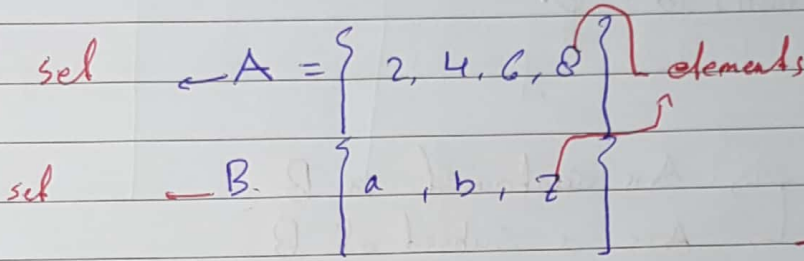 set ← A = { 2, 4, 6, 8 } elements
set ← B. { a , b , z }